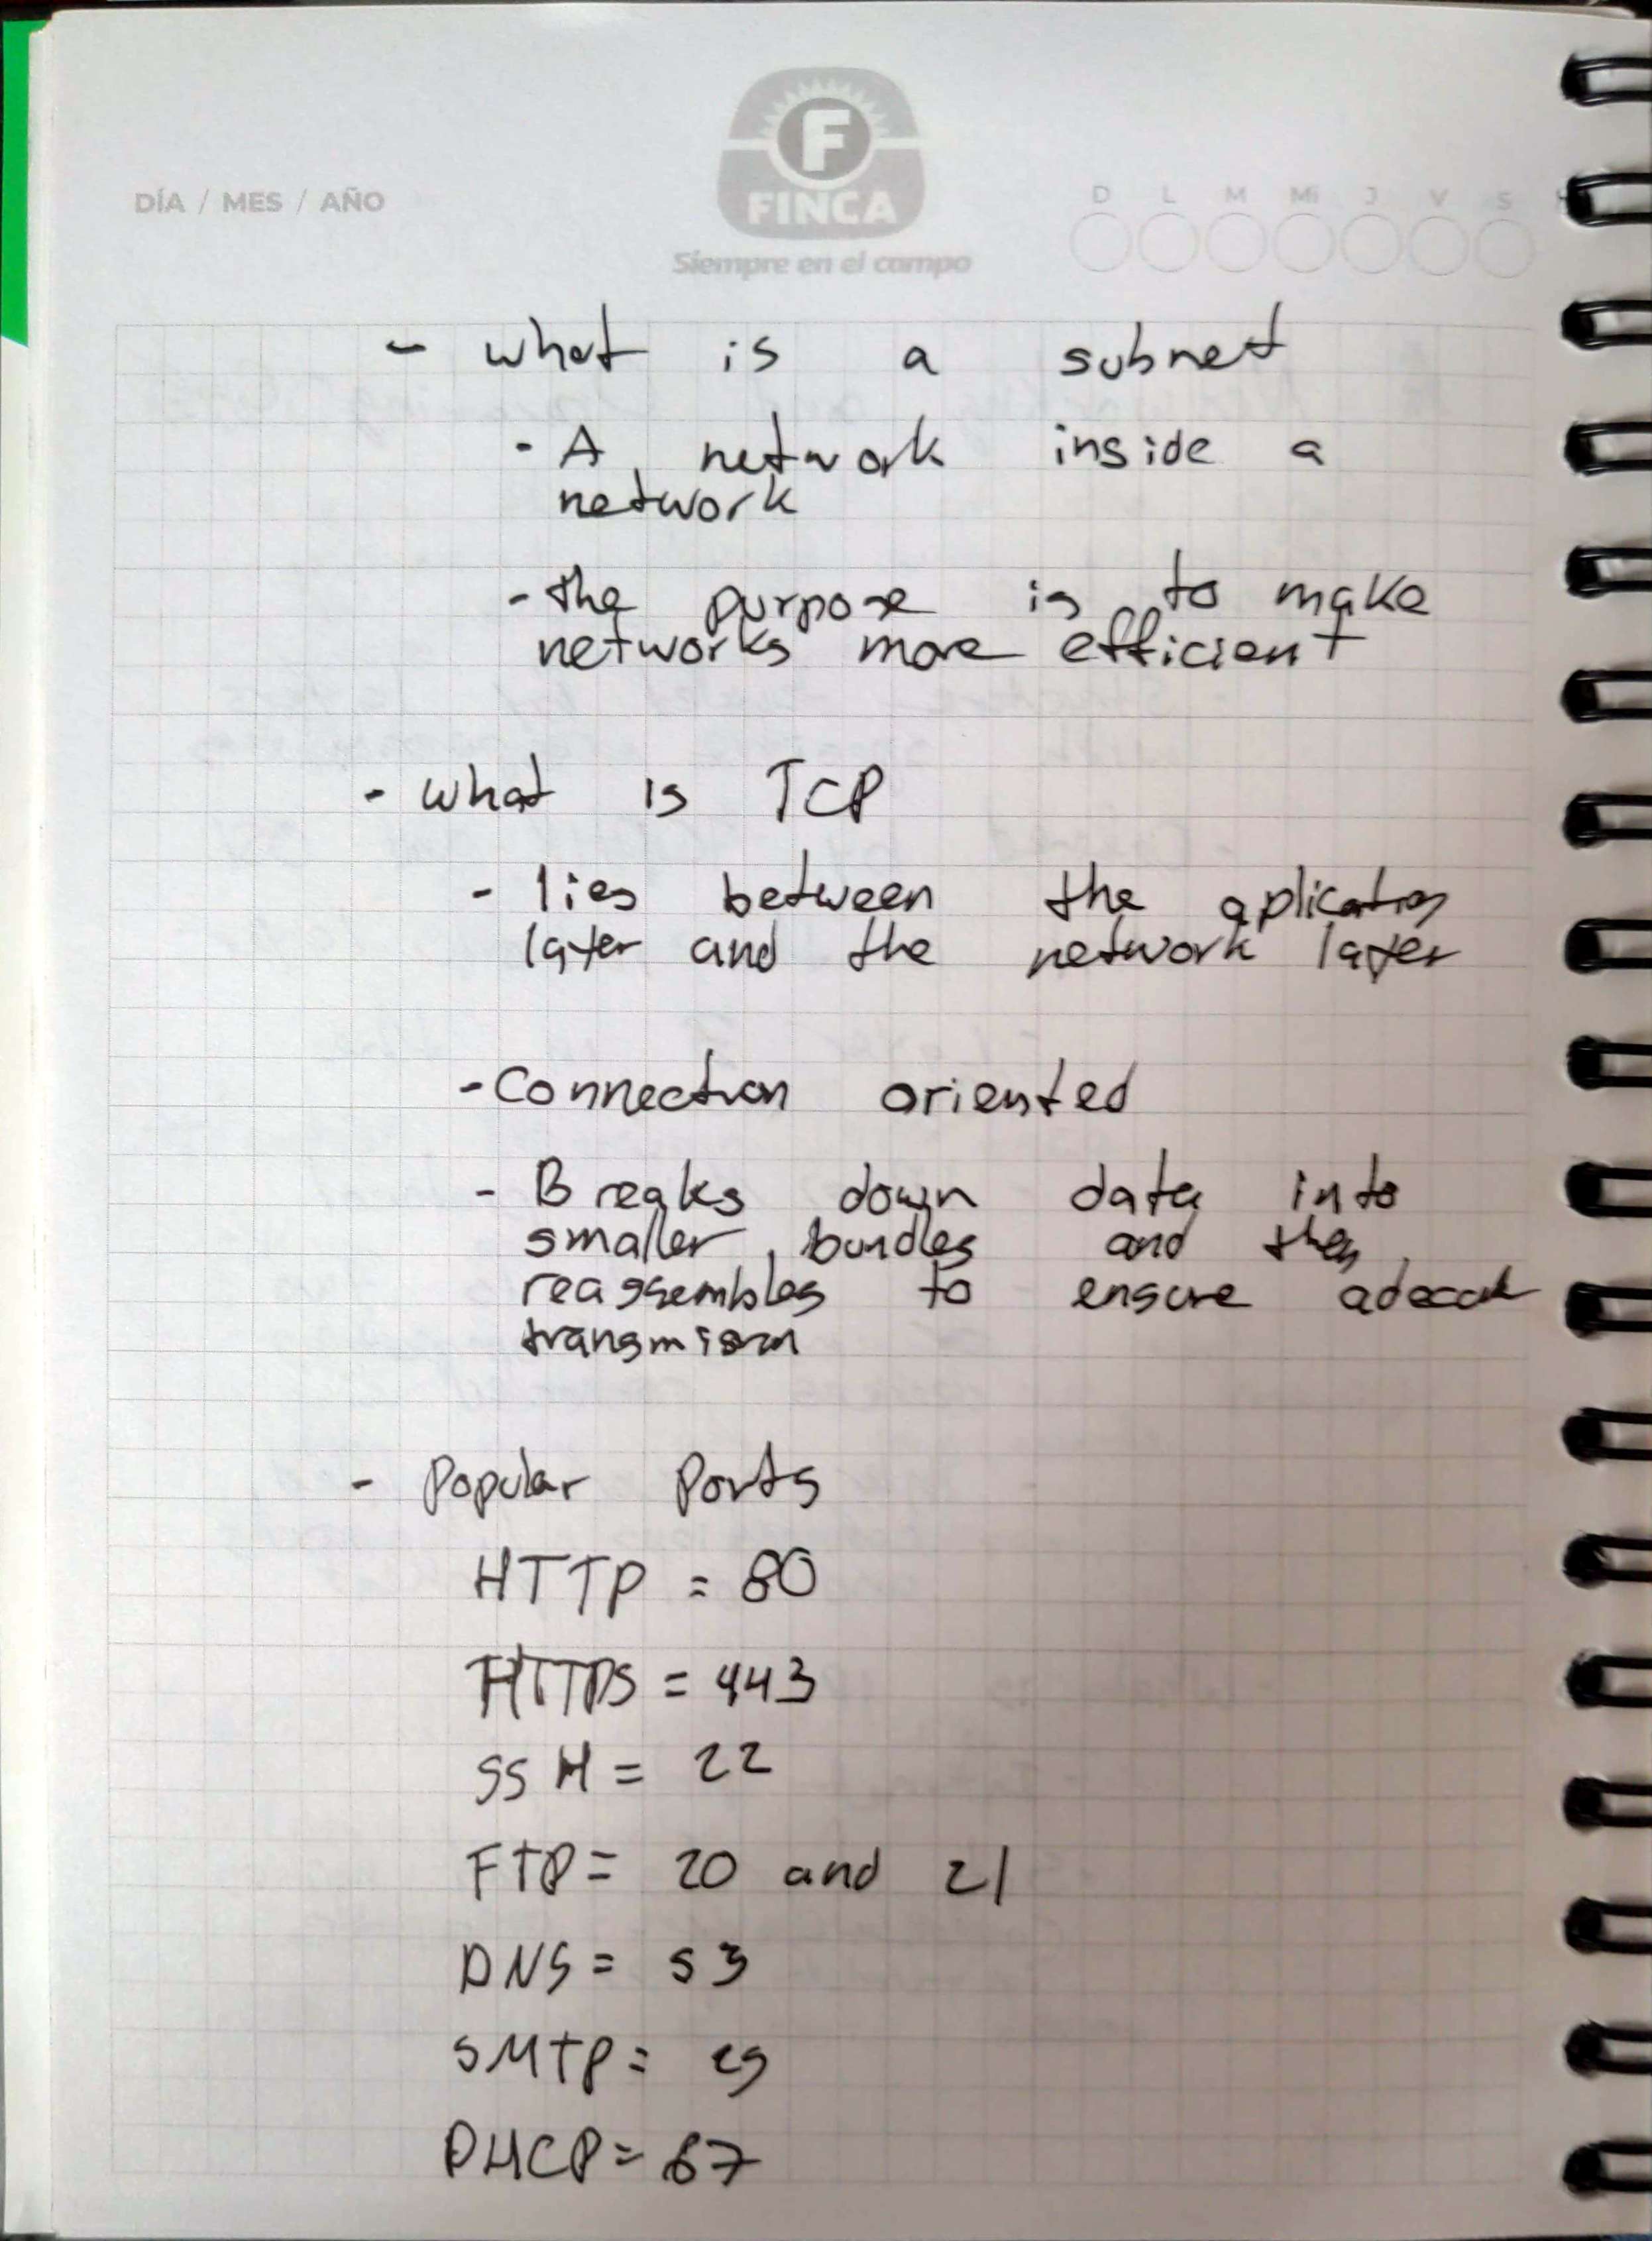 F
FINCA
Siempre en el campo
DÍA / MES / AÑO
D L M Mi J V S
- what is a subnet
- A network inside a
network
- the purpose is to make
networks more efficient
- what is TCP
- lies between the aplication
layer and the network layer
- Connection oriented
- Breaks down data into
smaller bundles and then
reassembles to ensure
- Popular Ports
HTTP = 80
HTTPS = 443
SSH = 22
FTP = 20 and 21
DNS = 53
SMTP = 25
DHCP = 67